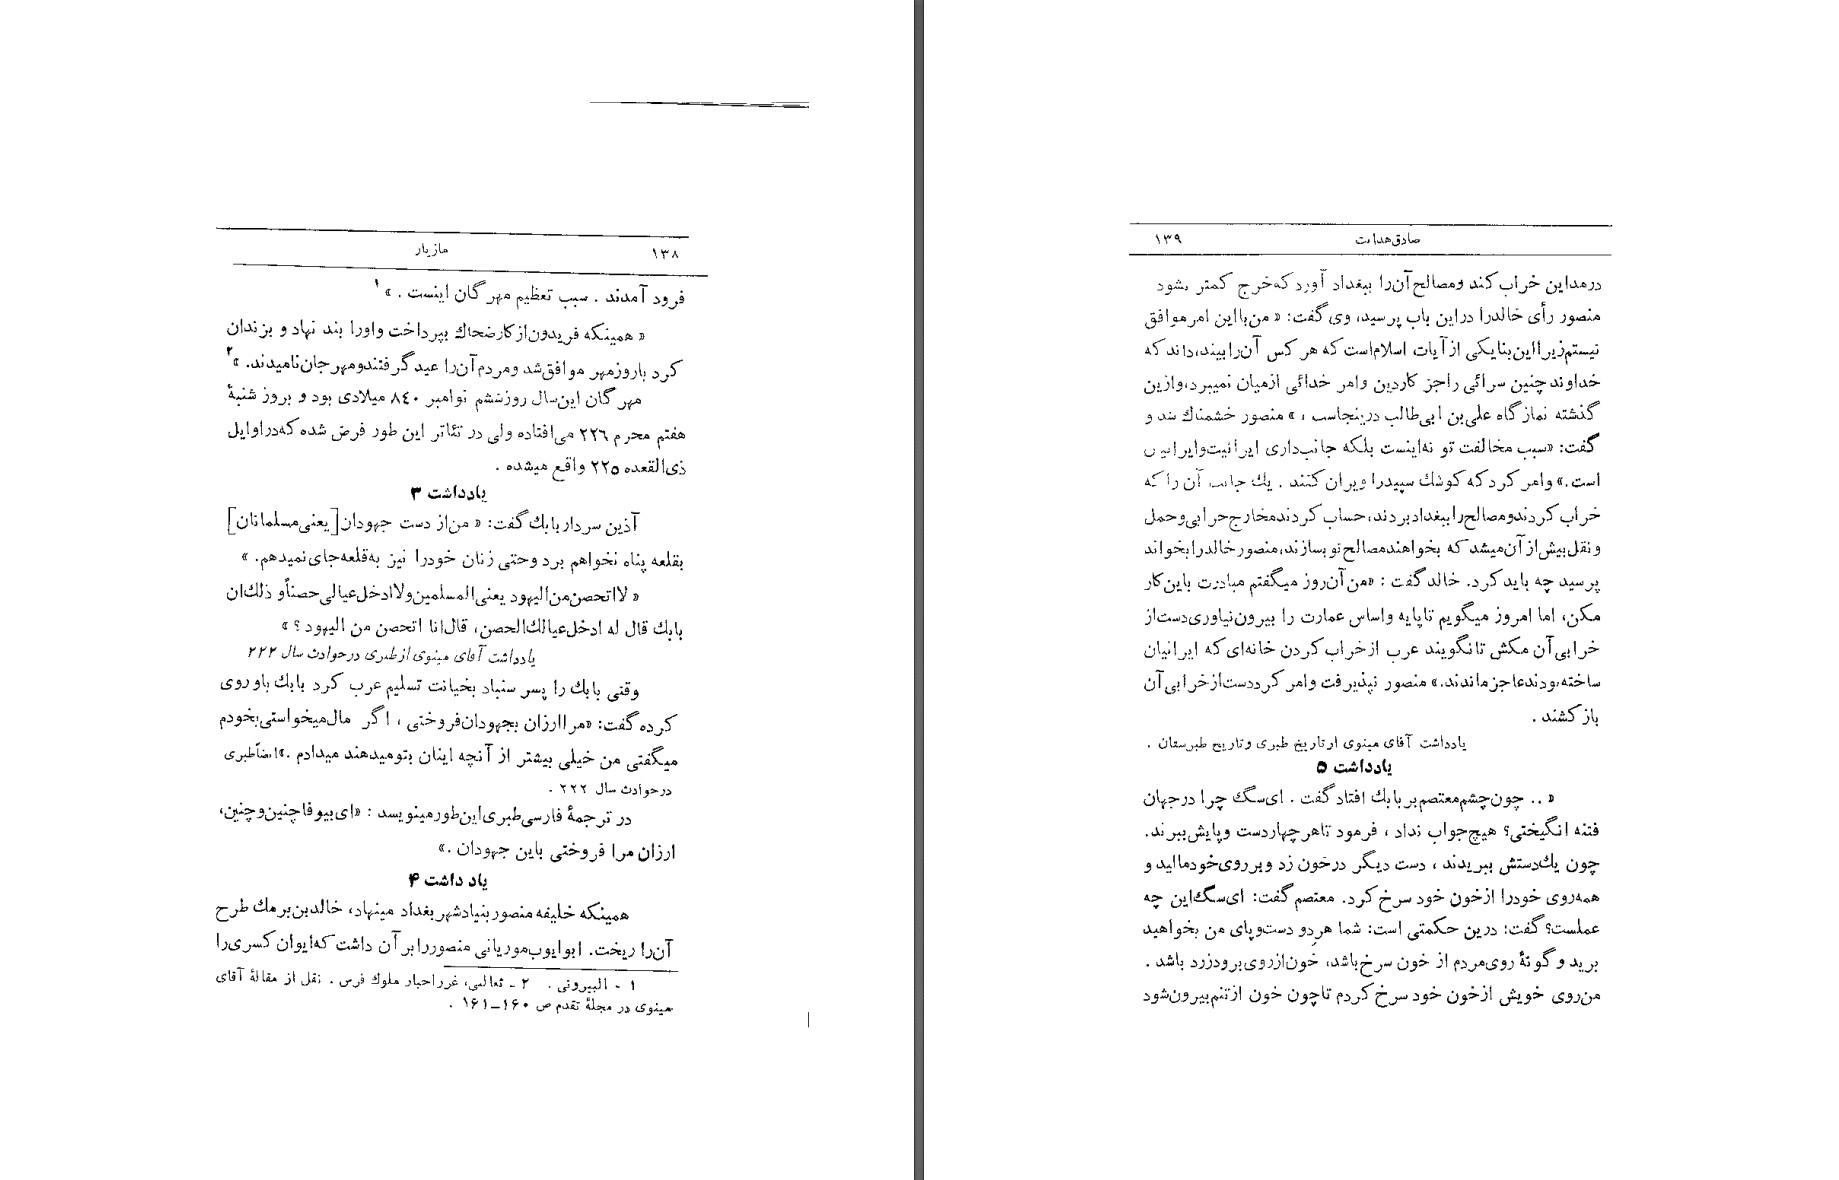 ۱۳۸ مازیار
فرود آمدند . سبب تعظیم مهرگان اینست . » ۱
« همینکه فریدون از کار ضحاك بپرداخت و اورا بند نهاد و بزندان
کرد باروز مهر موافق شد و مردم آن را عید گرفتند و مهرجان نامیدند. » ۲
مهرگان این سال روز ششم نوامبر ۸٤۰ میلادی بود و بروز شنبهٔ
هفتم محرم ۲۲٦ می‌افتاده ولی در تئاتر این طور فرض شده که در اوایل
ذی‌القعده ۲۲۵ واقع میشده .
یادداشت ۳
آذین سردار بابك گفت: « من از دست جهودان [یعنی مسلمانان]
بقلعه پناه نخواهم برد و حتی زنان خود را نیز به قلعه جای نمیدهم. »
« لااتحصن من الیهود یعنی المسلمین ولا ادخل عیالی حصناً و ذلك ان
بابك قال له ادخل عیالك الحصن، قال انا اتحصن من الیهود ؟ »
یادداشت آقای مینوی از طبری در حوادث سال ۲۲۲
وقتی بابك را پسر سنباد بخیانت تسلیم عرب کرد بابك باو روی
کرده گفت: «مرا ارزان بجهودان فروختی ، اگر مال میخواستی بخودم
میگفتی من خیلی بیشتر از آنچه اینان بتو میدهند میدادم .» ایضاً طبری
در حوادث سال ۲۲۲ .
در ترجمهٔ فارسی طبری این طور مینویسد : «ای بیوفا چنین و چنین،
ارزان مرا فروختی باین جهودان .»
یاد داشت ۴
همینکه خلیفه منصور بنیاد شهر بغداد مینهاد، خالد بن برمك طرح
آن را ریخت. ابو ایوب موریانی منصور را بر آن داشت که ایوان کسری را
۱ - البیرونی . ۲ - ثعالبی، غرر اخبار ملوك فرس . نقل از مقالهٔ آقای
مینوی در مجلهٔ تقدم ص ۱۶۰–۱۶۱ .
صادق هدایت ۱۳۹
در مداین خراب کند و مصالح آن را ببغداد آورد که خرج کمتر بشود
منصور رأی خالد را در این باب پرسید، وی گفت: « من با این امر موافق
نیستم زیرا این بنا یکی از آیات اسلام است که هر کس آن را بیند، داند که
خداوند چنین سرائی را جز کار دین و امر خدائی از میان نمیبرد، و ازین
گذشته نمازگاه علی بن ابی طالب درینجاست ، » منصور خشمناك شد و
گفت: «سبب مخالفت تو نه اینست بلکه جانب‌داری ایرانیت و ایرانیان
است.» و امر کرد که کوشك سپید را ویران کنند . یك جانب آن را که
خراب کردند و مصالح را ببغداد بردند، حساب کردند مخارج خرابی و حمل
و نقل بیش از آن میشد که بخواهند مصالح نو بسازند، منصور خالد را بخواند
پرسید چه باید کرد. خالد گفت : «من آن روز میگفتم مبادرت باین کار
مکن، اما امروز میگویم تا پایه و اساس عمارت را بیرون نیاوری دست از
خرابی آن مکش تا نگویند عرب از خراب کردن خانه‌ای که ایرانیان
ساخته بودند عاجز ماندند.» منصور نپذیرفت و امر کرد دست از خرابی آن
باز کشند .
یادداشت آقای مینوی از تاریخ طبری و تاریخ طبرستان .
یادداشت ۵
« .. چون چشم معتصم بر بابك افتاد گفت . ای سگ چرا در جهان
فتنه انگیختی؟ هیچ جواب نداد ، فرمود تا هر چهار دست و پایش ببرند.
چون یك دستش ببریدند ، دست دیگر در خون زد و بر روی خود مالید و
همه روی خود را از خون خود سرخ کرد. معتصم گفت: ای سگ این چه
عملست؟ گفت: درین حکمتی است: شما هر دو دست و پای من بخواهید
برید و گونهٔ روی مردم از خون سرخ باشد، خون از روی برود زرد باشد .
من روی خویش از خون خود سرخ کردم تا چون خون از تنم بیرون شود